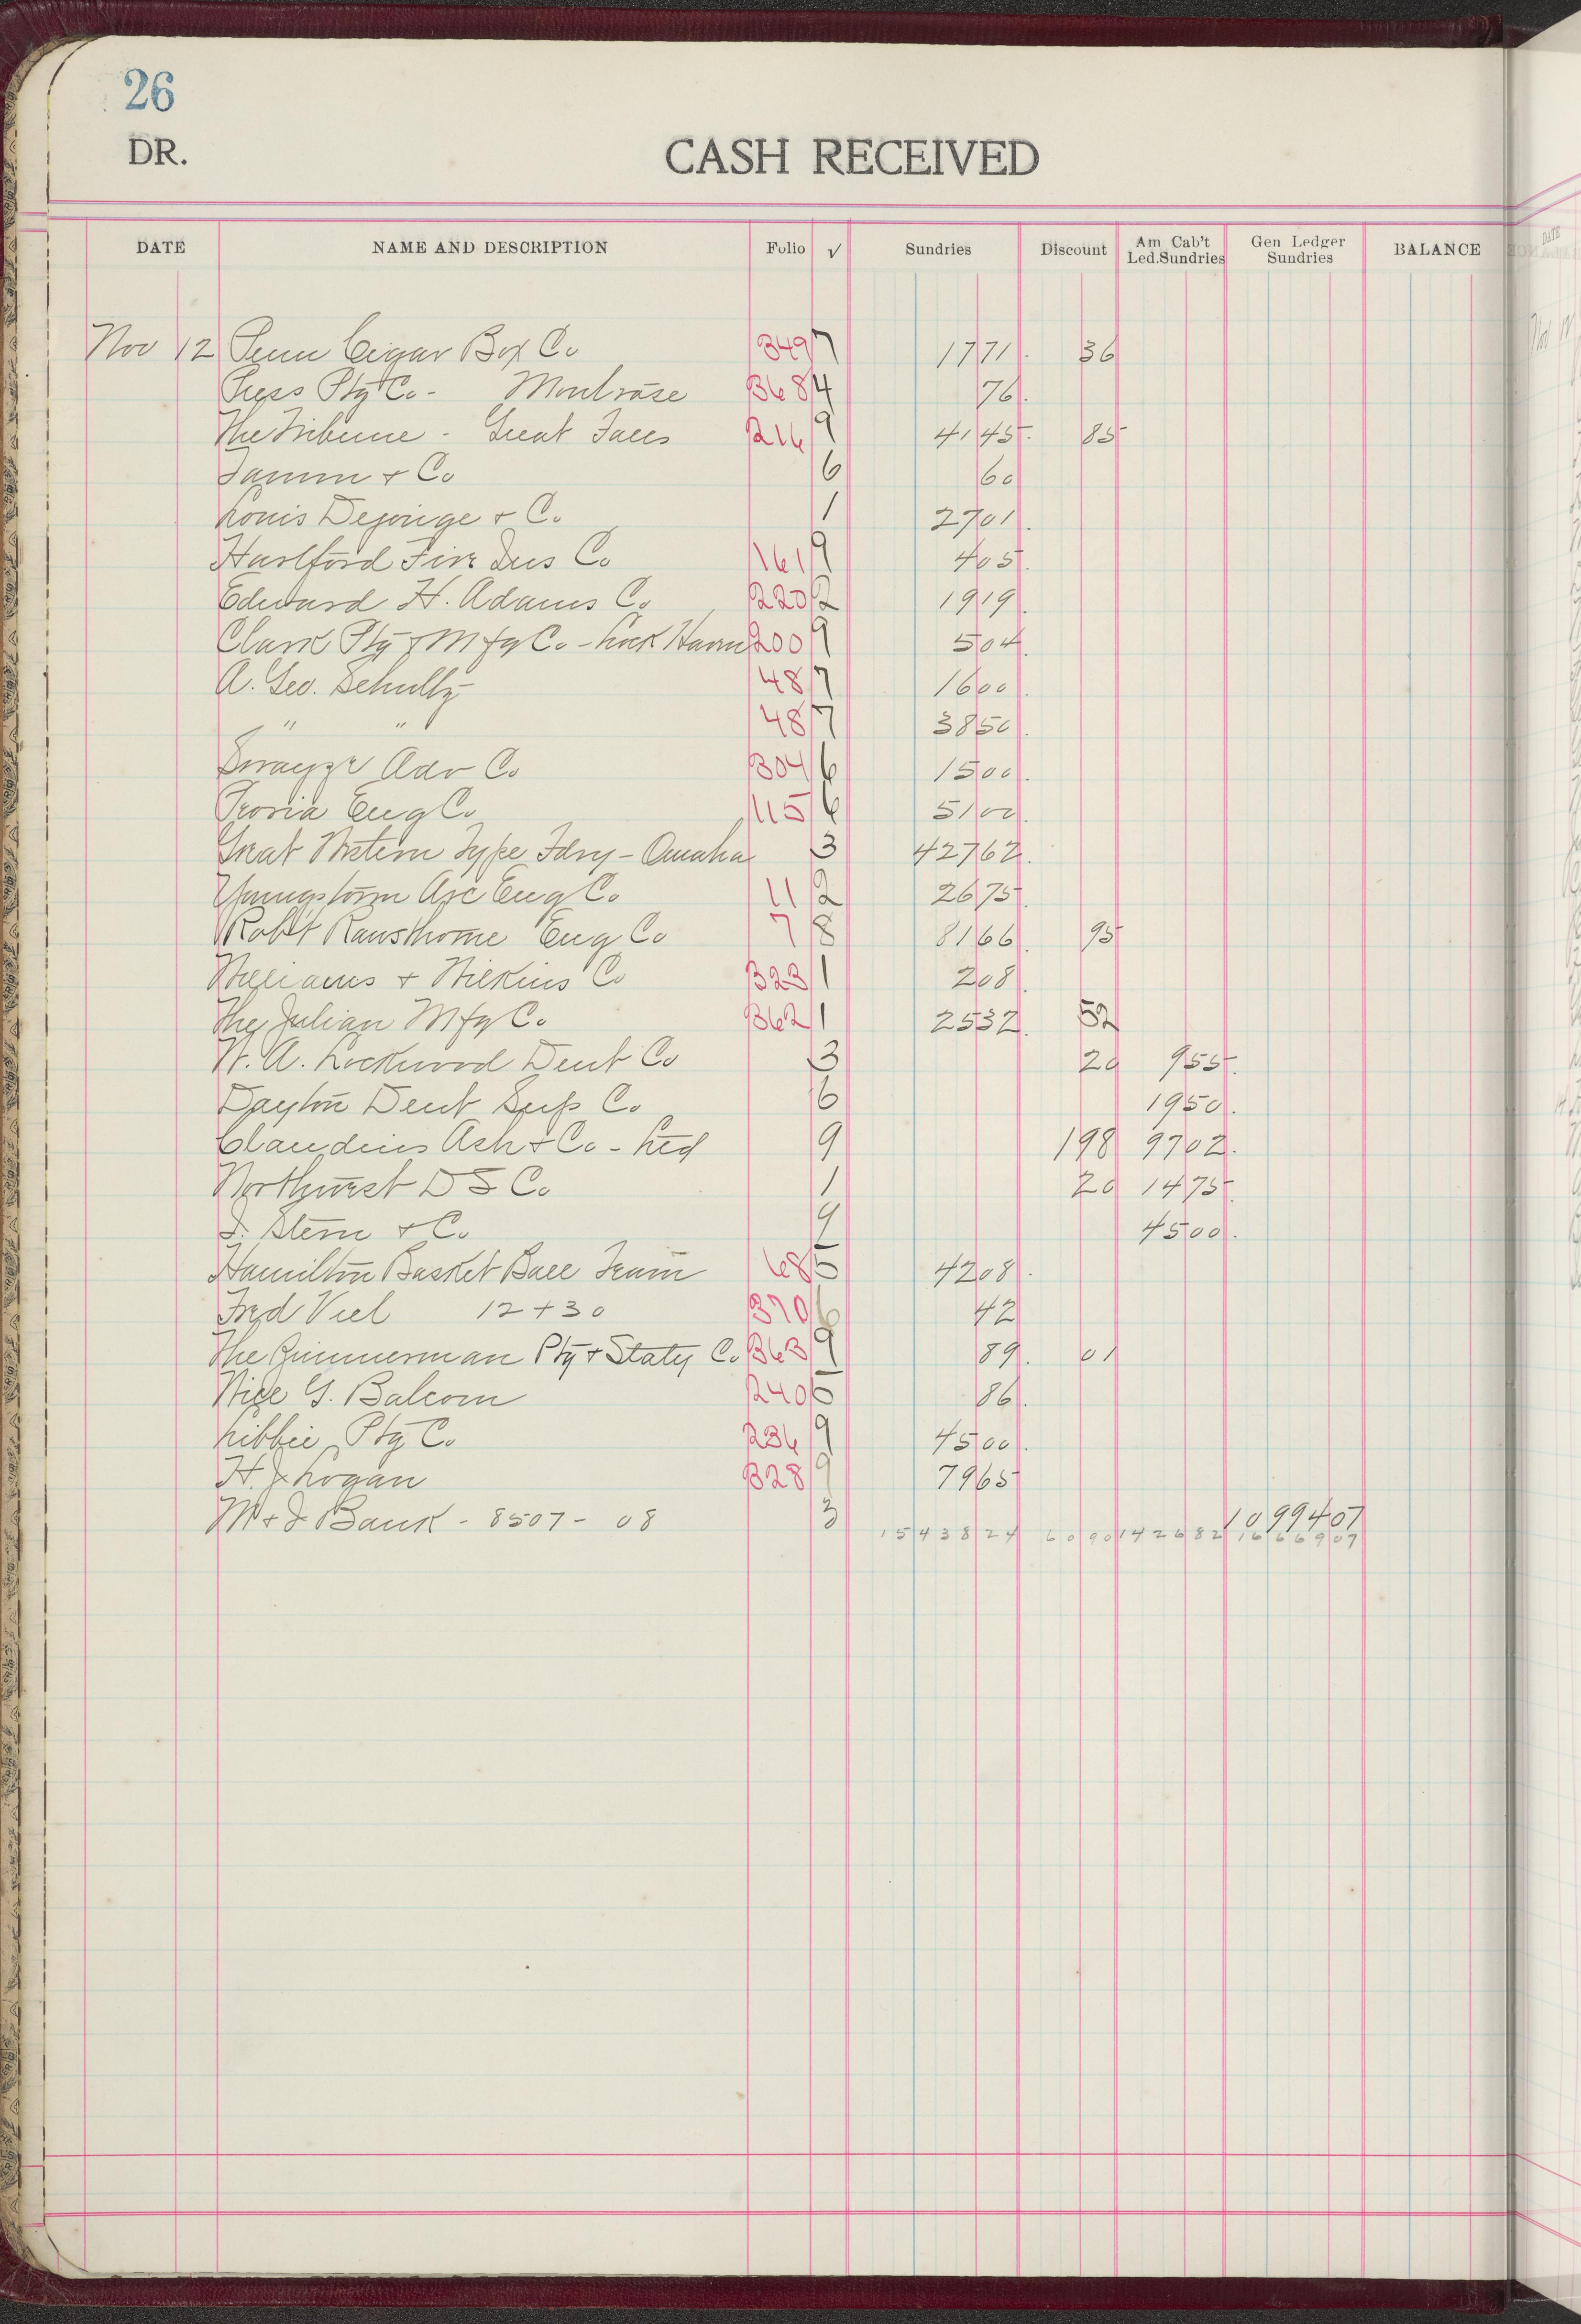 26
DR. CASH RECEIVED
DATE NAME AND DESCRIPTION Folio √ Sundries Discount Am Cab't Led.Sundries Gen Ledger Sundries BALANCE
Nov 12 Penn Cigar Box Co 349 7 1771. 36
Press Ptg Co - Montrose 368 4 76.
The Tribune - Great Falls 216 9 4145. 85
Tamm + Co 6 60
Louis Dejonge + Co. 1 2701.
Hartford Fire Ins Co 161 9 405.
Edward H. Adams Co 220 2 1919.
Clark Ptg + Mfg Co - Lock Haven 200 9 504.
A. Geo. Schultz 48 7 1600.
" " 48 7 3850.
Swayze Adv Co 304 6 1500.
Peoria Eng Co 115 6 5100.
Great Western Type Fdry - Omaha 3 42762.
Youngstown Arc Eng Co 11 2 2675.
Rob't Rawsthorne Eng Co 7 8 8166. 95
Williams + Wilkins Co 323 1 208.
The Julian Mfg Co 362 1 2532. 52
W. A. Lockwood Dent Co 3 20 955.
Dayton Dent Sup Co 6 1950.
Claudius Ash + Co - Ltd 9 198 9702.
Northwest D S Co 1 20 1475.
I. Stern + Co 9 4500.
Hamilton Basket Ball Team 68 5 4208.
Fred Viel 12 + 30 370 6 42
The Zimmerman Ptg + Staty Co 363 9 89. 01
Will G. Balcom 240 5 86.
Libbie Ptg Co 236 9 4500.
H. J. Logan 328 9 7965
M + I Bank - 8507 - 08 3 1099407
1543824 6090 142682 1666907